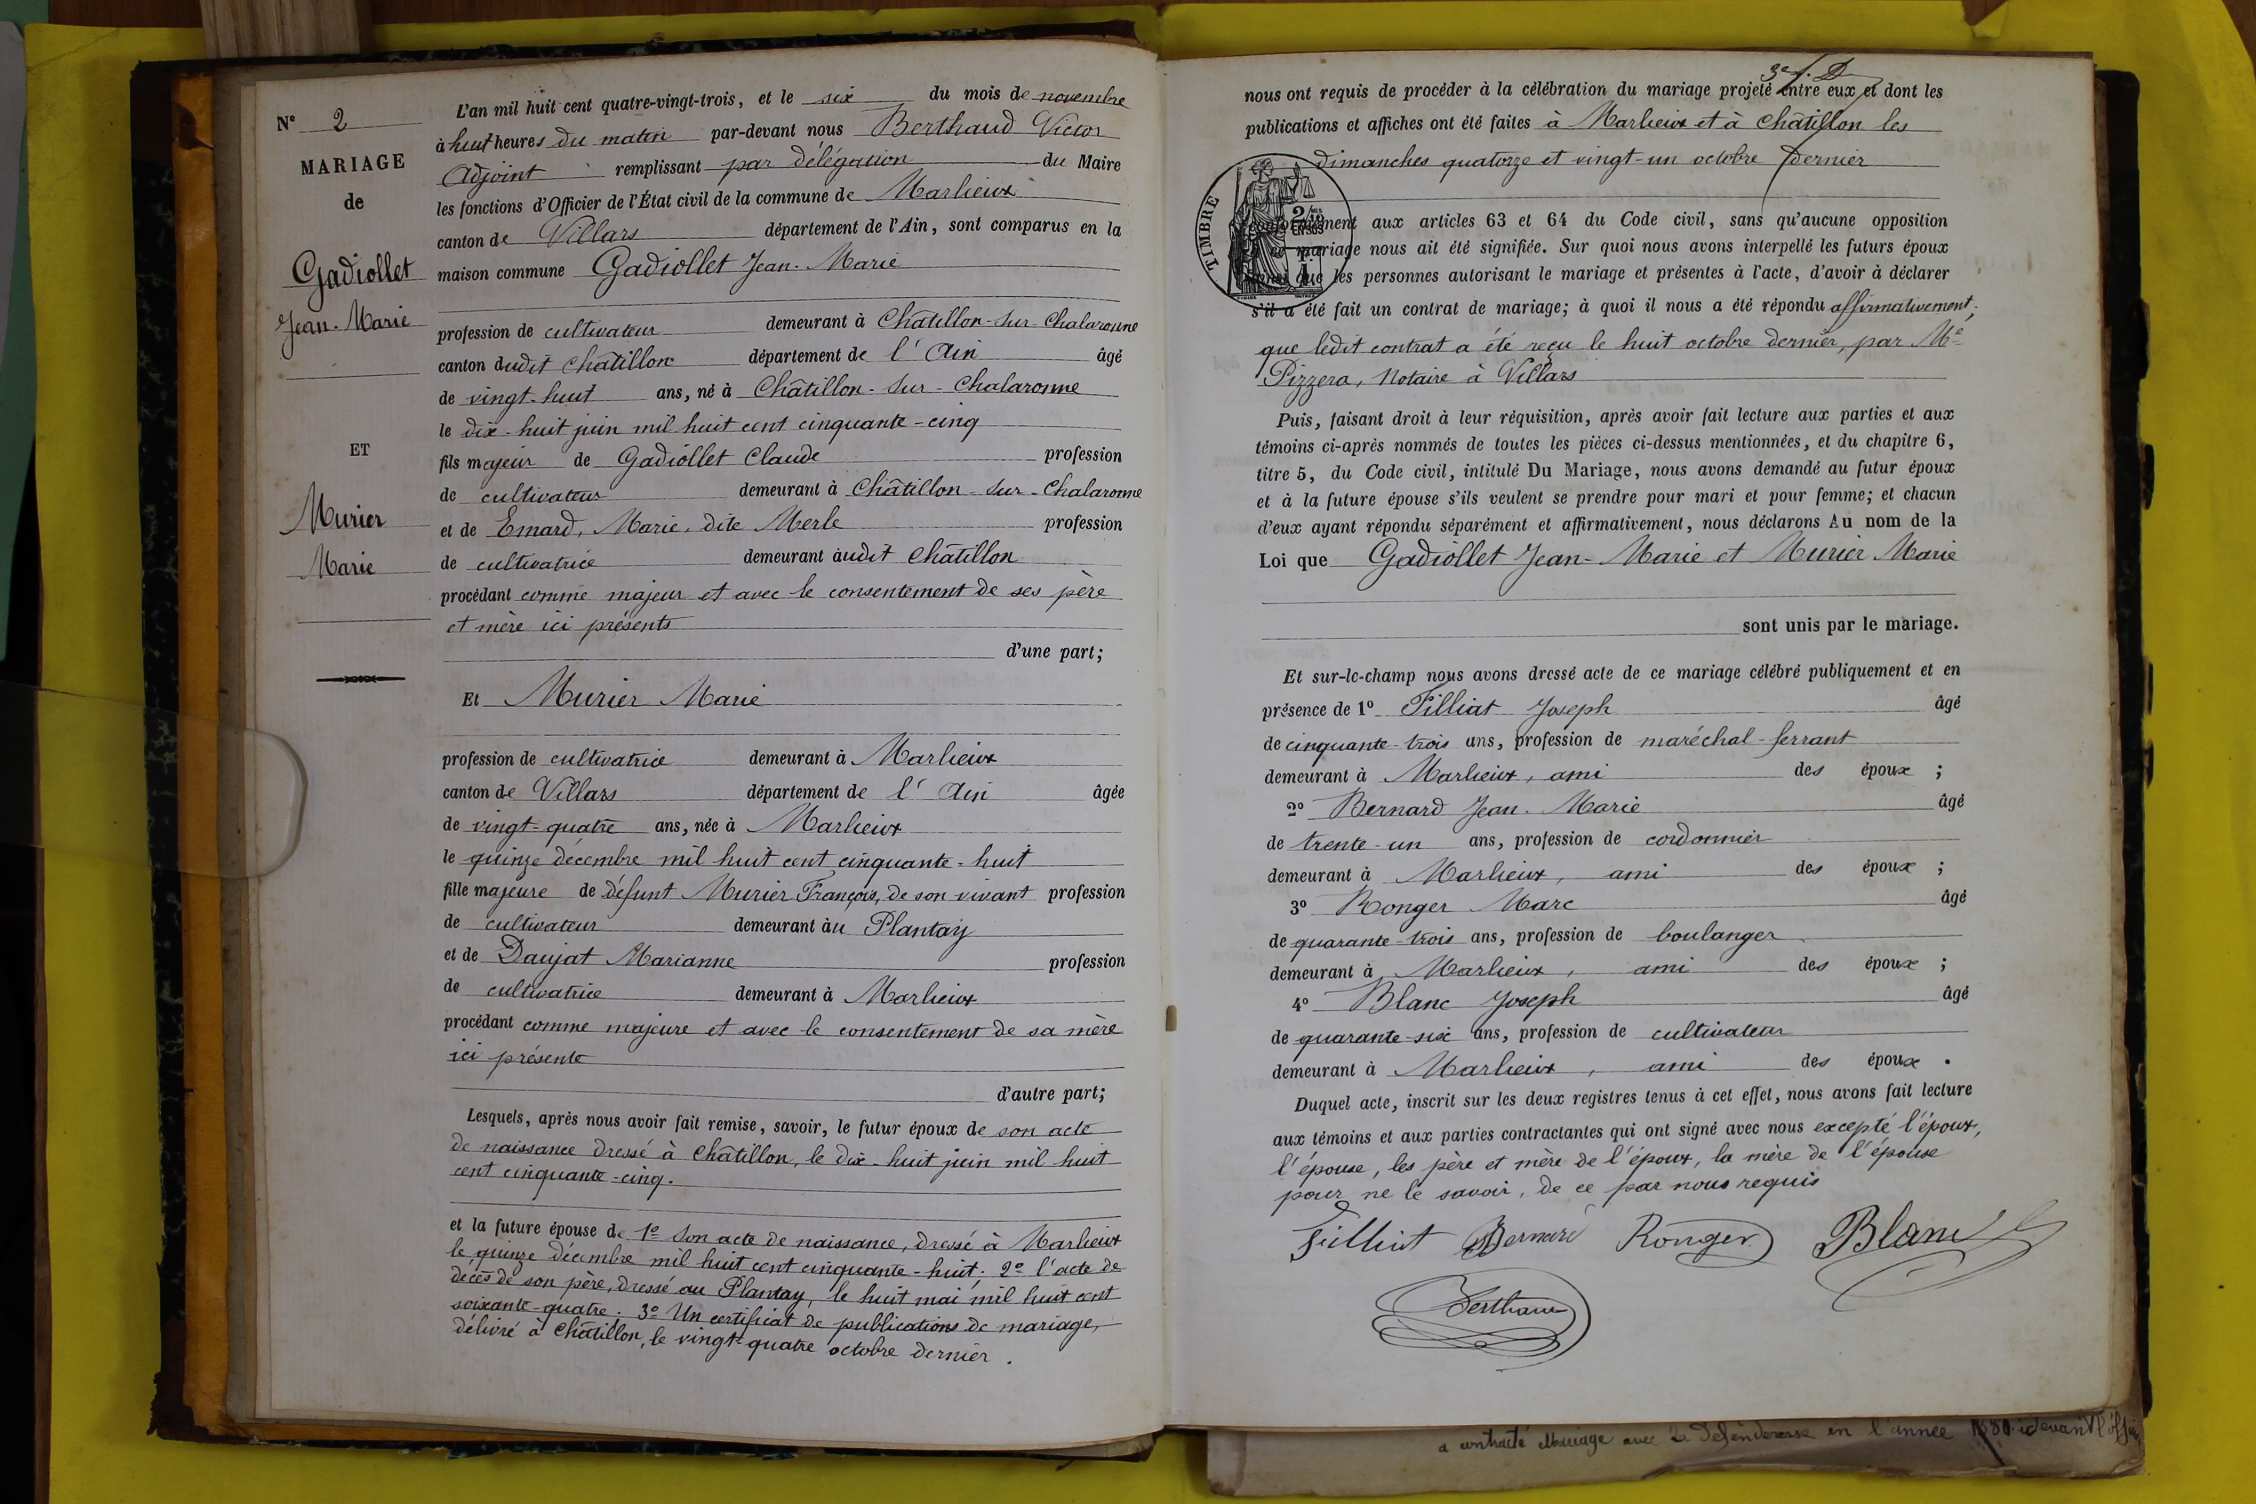 N° 2
MARIAGE
de
Gadiollet
Jean-Marie
ET
Murier
Marie
L'an mil huit cent quatre-vingt-trois, et le six du mois de novembre
à huit heures du matin par-devant nous Berthaud Victor
Adjoint remplissant par délégation du Maire
les fonctions d'Officier de l'État civil de la commune de Marlieux
canton de Villars département de l'Ain, sont comparus en la
maison commune Gadiollet Jean-Marie
profession de cultivateur demeurant à Châtillon-sur-Chalaronne
canton dudit Châtillon département de l'Ain âgé
de vingt-huit ans, né à Châtillon-sur-Chalaronne
le dix-huit juin mil huit cent cinquante-cinq
fils majeur de Gadiollet Claude profession
de cultivateur demeurant à Châtillon-sur-Chalaronne
et de Emard, Marie, dite Merle profession
de cultivatrice demeurant audit Châtillon
procédant comme majeur et avec le consentement de ses père
et mère ici présents
d'une part;
Et Murier Marie
profession de cultivatrice demeurant à Marlieux
canton de Villars département de l'Ain âgée
de vingt-quatre ans, née à Marlieux
le quinze décembre mil huit cent cinquante-huit
fille majeure de défunt Murier François, de son vivant profession
de cultivateur demeurant au Plantay
et de Daujat Marianne profession
de cultivatrice demeurant à Marlieux
procédant comme majeure et avec le consentement de sa mère
ici présente
d'autre part;
Lesquels, après nous avoir fait remise, savoir, le futur époux de son acte
de naissance dressé à Châtillon, le dix-huit juin mil huit
cent cinquante-cinq.
et la future épouse de 1° Son acte de naissance, dressé à Marlieux
le quinze décembre mil huit cent cinquante-huit. 2° l'acte de
décès de son père, dressé au Plantay, le huit mai mil huit cent
soixante-quatre. 3° Un certificat de publications de mariage,
délivré à Châtillon, le vingt-quatre octobre dernier.
nous ont requis de procéder à la célébration du mariage projeté entre eux et dont les
publications et affiches ont été faites à Marlieux et à Châtillon les
dimanches quatorze et vingt-un octobre dernier
TIMBRE
conformément aux articles 63 et 64 du Code civil, sans qu'aucune opposition
mariage nous ait été signifiée. Sur quoi nous avons interpellé les futurs époux
que les personnes autorisant le mariage et présentes à l'acte, d'avoir à déclarer
s'il a été fait un contrat de mariage; à quoi il nous a été répondu affirmativement;
que ledit contrat a été reçu le huit octobre dernier, par Me
Pizzera, Notaire à Villars
Puis, faisant droit à leur réquisition, après avoir fait lecture aux parties et aux
témoins ci-après nommés de toutes les pièces ci-dessus mentionnées, et du chapitre 6,
titre 5, du Code civil, intitulé Du Mariage, nous avons demandé au futur époux
et à la future épouse s'ils veulent se prendre pour mari et pour femme; et chacun
d'eux ayant répondu séparément et affirmativement, nous déclarons Au nom de la
Loi que Gadiollet Jean-Marie et Murier Marie
sont unis par le mariage.
Et sur-le-champ nous avons dressé acte de ce mariage célébré publiquement et en
présence de 1° Filliat Joseph âgé
de cinquante-trois ans, profession de maréchal-ferrant
demeurant à Marlieux, ami des époux ;
2° Bernard Jean-Marie âgé
de trente-un ans, profession de cordonnier
demeurant à Marlieux, ami des époux ;
3° Ronger Marc âgé
de quarante-trois ans, profession de boulanger
demeurant à Marlieux, ami des époux ;
4° Blanc Joseph âgé
de quarante-six ans, profession de cultivateur
demeurant à Marlieux, ami des époux .
Duquel acte, inscrit sur les deux registres tenus à cet effet, nous avons fait lecture
aux témoins et aux parties contractantes qui ont signé avec nous excepté l'époux,
l'épouse, les père et mère de l'époux, la mère de l'épouse
pour ne le savoir, de ce par nous requis
Filliat Bernard Ronger Blanc
Berthaud
a contracté Mariage avec la Défenderesse en l'année